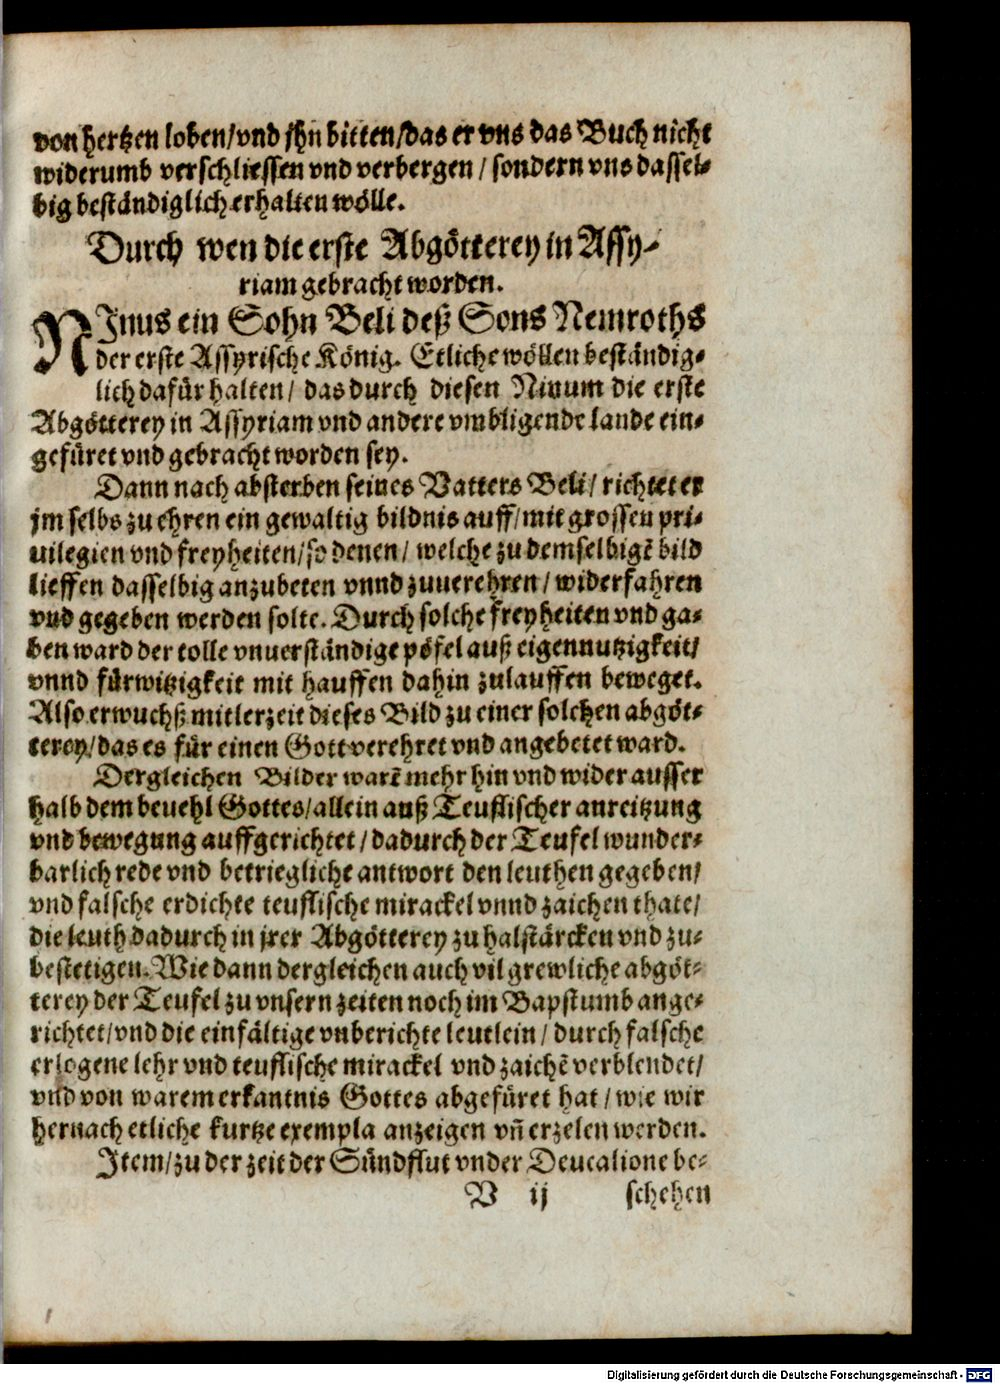 von hertzen loben/vnd jhn bitten/das er vns das Buch nicht
widerumb verschliessen vnd verbergen / sondern vns dassel-
big beständiglich erhalten wölle.
Durch wen die erste Abgötterey in Assy-
riam gebracht worden.
NInus ein Sohn Beli deß Sons Nemroths
der erste Assyrische König. Etliche wöllen beständig-
lich dafür halten / das durch diesen Ninum die erste
Abgötterey in Assyriam vnd andere vmbligende lande ein-
gefüret vnd gebracht worden sey.
Dann nach absterben seines Vatters Beli/ richtet er
jm selbs zu ehren ein gewaltig bildnis auff/ mit grossen pri-
uilegien vnd freyheiten/so denen / welche zu demselbigē bild
lieffen dasselbig anzubeten vnnd zuuerehren / widerfahren
vnd gegeben werden solte. Durch solche freyheiten vnd ga-
ben ward der tolle vnuerständige pöfel auß eigennutzigkeit/
vnnd fürwitzigkeit mit hauffen dahin zulauffen beweget.
Also erwuchß mitlerzeit dieses Bild zu einer solchen abgöt-
terey/das es für einen Gott verehret vnd angebetet ward.
Dergleichen Bilder warē mehr hin vnd wider ausser
halb dem beuehl Gottes/allein auß Teuflischer anreitzung
vnd bewegung auffgerichtet / dadurch der Teufel wunder-
barlich rede vnd betriegliche antwort den leuthen gegeben/
vnd falsche erdichte teuflische mirackel vnnd zaichen thate/
die leuth dadurch in jrer Abgötterey zu halstärcken vnd zu-
bestetigen. Wie dann dergleichen auch vil grewliche abgöt-
terey der Teufel zu vnsern zeiten noch im Bapstumb ange-
richtet/vnd die einfältige vnberichte leutlein / durch falsche
erlogene lehr vnd teuflische mirackel vnd zaichē verblendet/
vnd von warem erkantnis Gottes abgefüret hat / wie wir
hernach etliche kurtze exempla anzeigen vñ erzelen werden.
Item/zu der zeit der Sündflut vnder Deucalione be-
V ij schehen
Digitalisierung gefördert durch die Deutsche Forschungsgemeinschaft - DFG